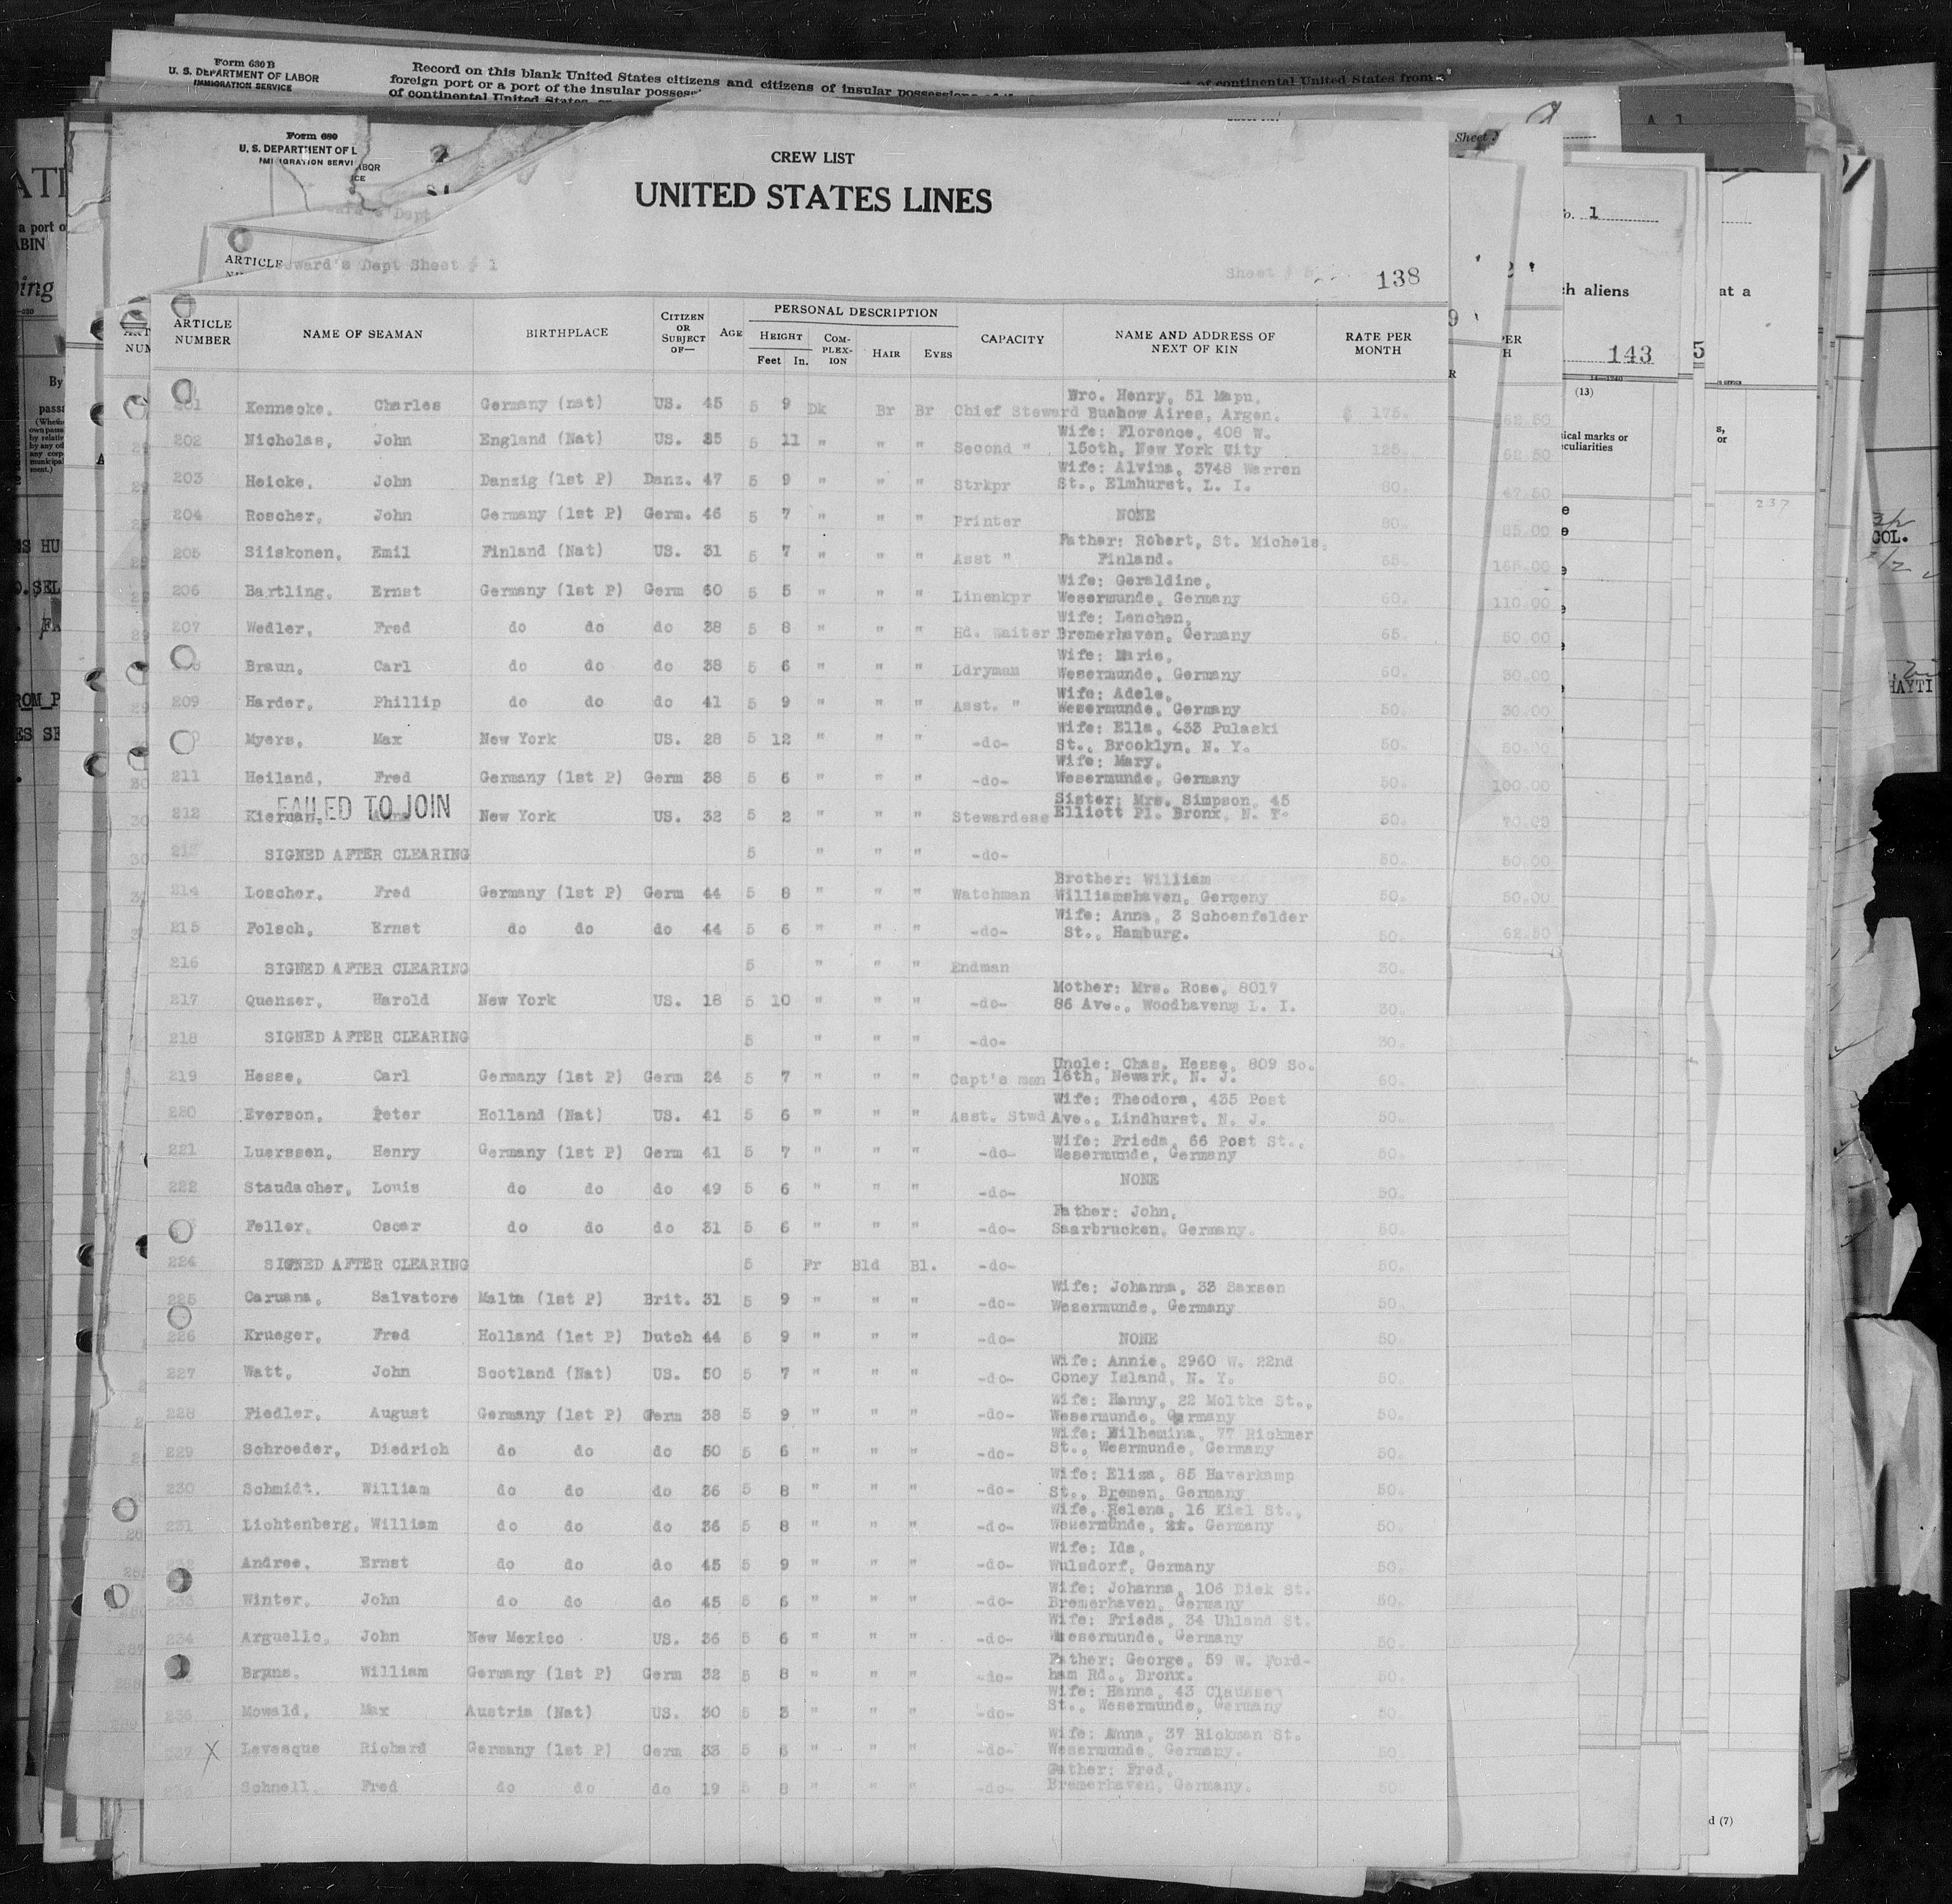 Form 630 B
U. S. DEPARTMENT OF LABOR
IMMIGRATION SERVICE
Record on this blank United States citizens and citizens of insular possessions
of continental United States from
foreign port or a port of the insular
of continental United States
Form 680
U. S. DEPARTMENT OF L
IMMIGRATION SERVI
ABOR
ICE
CREW LIST
UNITED STATES LINES
Dept
ARTICLE
Dept Sheet # 1
Sheet #
138
ARTICLE NUMBER
NAME OF SEAMAN
BIRTHPLACE
CITIZEN OR SUBJECT OF—
AGE
PERSONAL DESCRIPTION
HEIGHT
Feet In.
COM-PLEX-ION
HAIR
EYES
CAPACITY
NAME AND ADDRESS OF NEXT OF KIN
RATE PER MONTH
Bro. Henry, 51 Mapu,
201 Kennecke, Charles Germany (nat) US. 45 5 9 Dk Br Br Chief Steward Buenow Aires, Argen. $ 175.
Wife: Florence, 408 W.
202 Nicholas, John England (Nat) US. 35 5 11 " " " Second " 150th, New York City 125.
Wife: Alvina, 3748 Warren
203 Heicke, John Danzig (1st P) Danz. 47 5 9 " " " Strkpr St., Elmhurst, L. I. 80.
204 Roscher, John Germany (1st P) Germ. 46 5 7 " " " Printer NONE 80.
Father: Robert, St. Michels,
205 Siiskonen, Emil Finland (Nat) US. 31 5 7 " " " Asst " Finland. 65.
Wife: Geraldine,
206 Bartling, Ernst Germany (1st P) Germ 60 5 5 " " " Linenkpr Wesermunde, Germany 60.
Wife: Lenchen,
207 Wedler, Fred do do do 38 5 8 " " " Hd. Waiter Bremerhaven, Germany 65.
Wife: Marie,
Braun, Carl do do do 38 5 6 " " " Ldryman Wesermunde, Germany 60.
Wife: Adele,
209 Harder, Phillip do do do 41 5 9 " " " Asst. " Wesermunde, Germany 50.
Wife: Ella, 433 Pulaski
Myers, Max New York US. 28 5 12 " " " -do- St., Brooklyn, N. Y. 50.
Wife: Mary,
211 Heiland, Fred Germany (1st P) Germ 38 5 6 " " " -do- Wesermunde, Germany 50.
FAILED TO JOIN
Sister: Mrs. Simpson, 45
212 Kiernan, New York US. 32 5 2 " " " Stewardess Elliott Pl. Bronx, N. Y. 50.
213 SIGNED AFTER CLEARING 5 " " " -do- 50.
Brother: William
214 Loscher, Fred Germany (1st P) Germ 44 5 8 " " " Watchman Williamshaven, Germeny 50.
Wife: Anna, 3 Schoenfelder
215 Folsch, Ernst do do do 44 5 6 " " " -do- St., Hamburg. 50.
216 SIGNED AFTER CLEARING 5 " " " Endman 30.
Mother: Mrs. Rose, 8017
217 Quenzer, Harold New York US. 18 5 10 " " " -do- 86 Ave., Woodhaven, L. I. 30.
218 SIGNED AFTER CLEARING 5 " " " -do- 30.
Uncle: Chas. Hesse, 809 So.
219 Hesse, Carl Germany (1st P) Germ 24 5 7 " " " Capt's man 16th, Newark, N. J. 50.
Wife: Theodora, 435 Post
220 Everson, Peter Holland (Nat) US. 41 5 6 " " " Asst. Stwd Ave., Lindhurst, N. J. 50.
Wife: Frieda, 66 Post St.,
221 Luerssen, Henry Germany (1st P) Germ 41 5 7 " " " -do- Wesermunde, Germany 50.
222 Staudacher, Louis do do do 49 5 6 " " " -do- NONE 50.
Father: John,
Feller, Oscar do do do 31 5 6 " " " -do- Saarbrucken, Germany. 50.
224 SIGNED AFTER CLEARING 5 Fr Bld Bl. -do- 50.
Wife: Johanna, 33 Saxsen
225 Caruana, Salvatore Malta (1st P) Brit. 31 5 9 " " " -do- Wesermunde, Germany 50.
226 Krueger, Fred Holland (1st P) Dutch 44 5 9 " " " -do- NONE 50.
Wife: Annie, 2960 W. 22nd
227 Watt, John Scotland (Nat) US. 50 5 7 " " " -do- Coney Island, N. Y. 50.
Wife: Hanny, 22 Moltke St.,
228 Fiedler, August Germany (1st P) Germ 38 5 9 " " " -do- Wesermunde, Germany 50.
Wife: Wilhemina, 77 Rickmer
229 Schroeder, Diedrich do do do 50 5 6 " " " -do- St., Wesrmunde, Germany 50.
Wife: Eliza, 85 Haverkamp
230 Schmidt, William do do do 36 5 8 " " " -do- St., Bremen, Germany 50.
Wife, Helena, 16 Kiel St.,
231 Lichtenberg, William do do do 36 5 8 " " " -do- Wesermunde, Germany 50.
Wife: Ida,
232 Andree, Ernst do do do 45 5 9 " " " -do- Wulsdorf, Germany 50.
Wife: Johanna, 106 Diek St.
233 Winter, John do do do 45 5 6 " " " -do- Bremerhaven, Germany 50.
Wife: Frieda, 34 Uhland St.
234 Arguello, John New Mexico US. 36 5 6 " " " -do- Wesermunde, Germany 50.
Father: George, 59 W. Ford-
Bruns, William Germany (1st P) Germ 32 5 8 " " " -do- ham Rd., Bronx. 50.
Wife: Hanna, 43 Claussen
236 Mowald, Max Austria (Nat) US. 30 5 3 " " " -do- St., Wesermunde, Germany 50.
Wife: Anna, 37 Rickman St.
237 X Levesque Richard Germany (1st P) Germ 33 5 6 " " " -do- Wesermunde, Germany. 50.
Father: Fred,
238 Schnell, Fred do do do 19 5 8 " " " -do- Bremerhaven, Germany. 50.
62.50
62.50
47.50
85.00
165.00
110.00
50.00
30.00
30.00
50.00
100.00
70.00
50.00
50.00
62.50
Sheet
1
ch aliens
143
(13)
ical marks or
culiarities
at a
5
237
COL.
HAYTI
d (7)